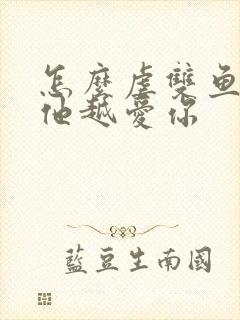 怎麼虐雙魚
他越愛你
藍豆生南國